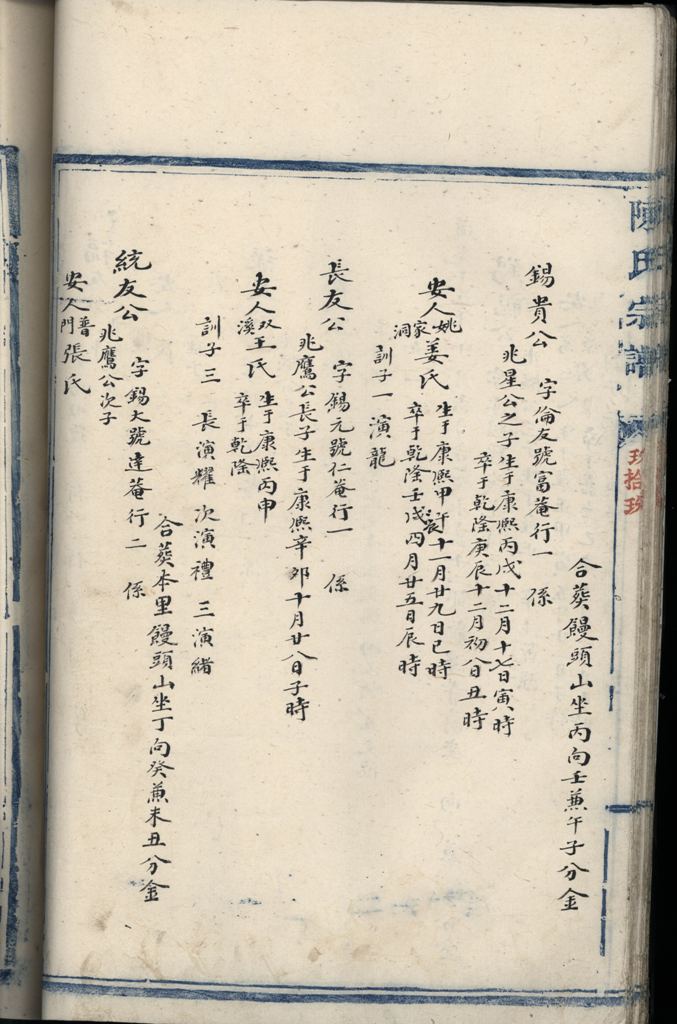 陳氏宗譜
玖拾玖
合葬饅頭山坐丙向壬兼午子分金
錫貴公 字倫友號富菴行一 係
兆星公之子生于康熙丙戌十二月十七日寅時
卒于乾隆庚辰十二月初八日丑時
安人姚家洞姜氏 生于康熙甲午十一月廿九日巳時
卒于乾隆壬戌四月廿五日辰時
訓子一 演龍
長友公 字錫元號仁菴行一 係
兆鷹公長子生于康熙辛卯十月廿八日子時
安人双溪王氏 生于康熙丙申
卒于乾隆
訓子三 長演耀 次演禮 三演緒
合葬本里饅頭山坐丁向癸兼未丑分金
統友公 字錫大號達菴行二 係
兆鷹公次子
安人普門張氏